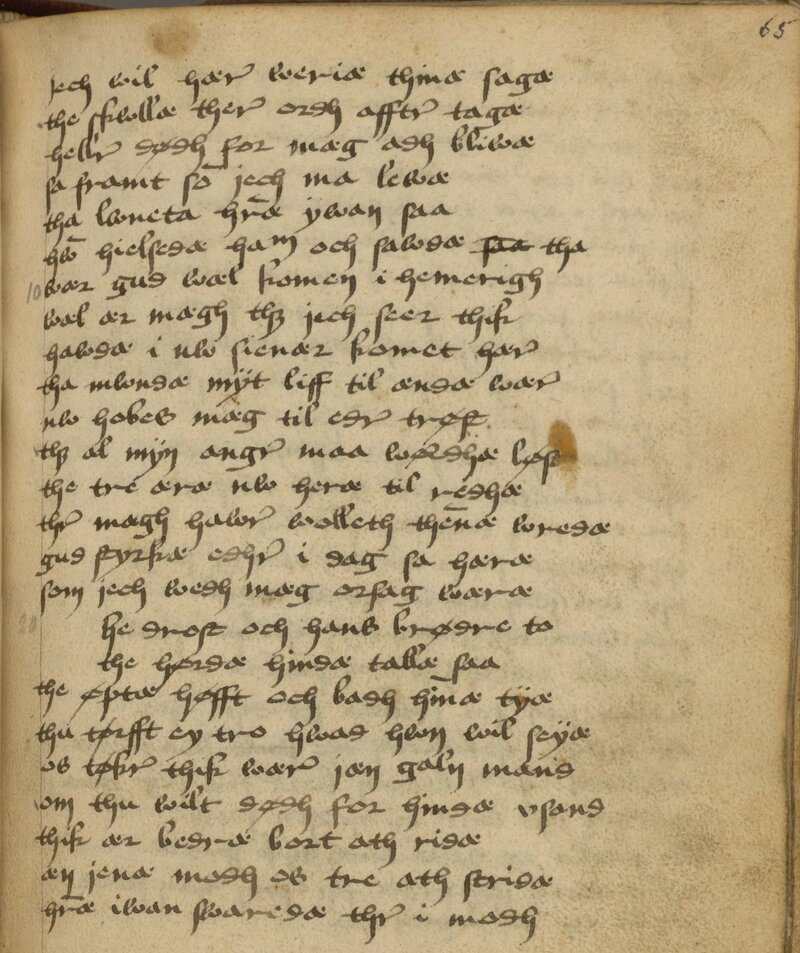 65
jech wil hær weriæ thinæ sagæ
the skwllæ ther ordh afftr tagæ
hellr dødh for mæg adh bliwæ
sa framt so jech ma lewæ
tha lwneta hræ ywan saa
hw hielsedæ ham och sawdæ saa tha
10 wær gud wæl komen i hemerigh
wæl ær mægh thz jech seer thik
hawdæ i nw sienær komet hær
tha mwndæ myt liff til ændæ wær
nw hobes mæg til edr trøst
thz al myn angr maa wordhæ løst
the tre æræ nw heræ til redhæ
thr mægh hawr wolleth thenæ wredæ
gud styrkæ edhr i dag sa hæræ
som jech wedh mæg orsag wæræ
20 he drost och hans brødre to
the hørdæ hindæ tallæ saa
the øptæ høfft och badh hinæ tyæ
thu tørfft ey tro hwad hwn wil seyæ
os tøkr thik wær jæn galn mand
om thu wilt dødh for hindæ vsand
thik ær bedræ bort ath ridæ
æn jenæ modh os tre ath stridæ
hræ iwan swaredæ thr i modh